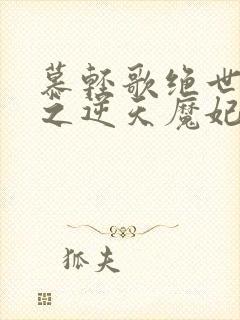 慕轻歌绝世
之逆天魔妃
狐夫